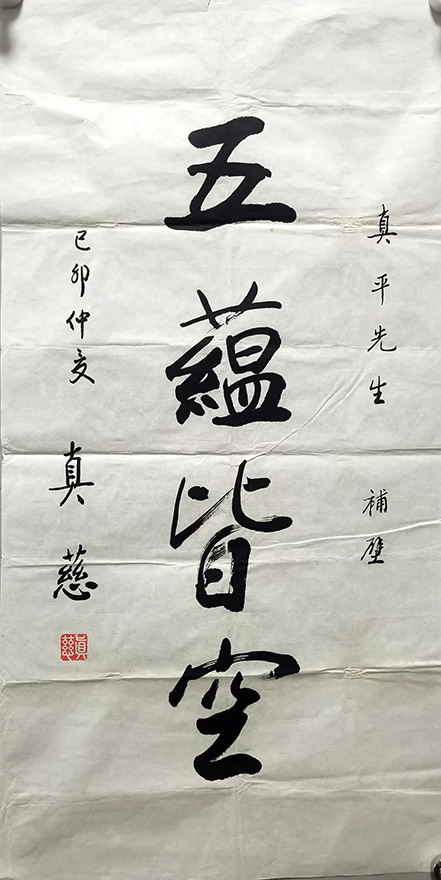 真平先生 補壁
五蘊皆空
己卯仲夏 真慈
真慈